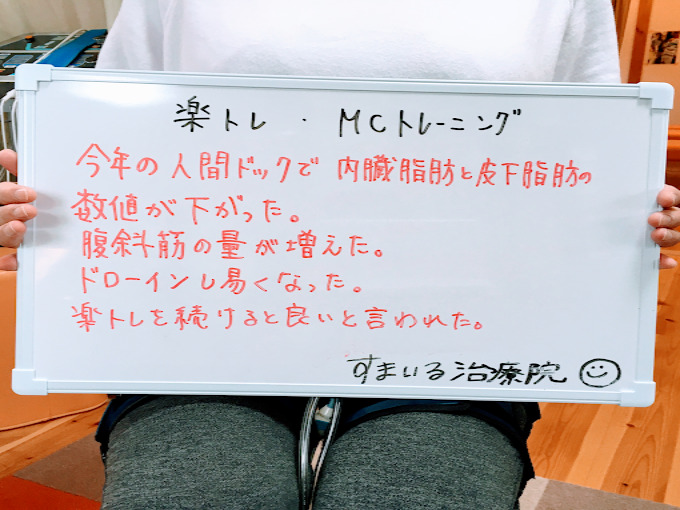 楽トレ ・ MCトレーニング
今年の人間ドックで 内臓脂肪と皮下脂肪の
数値が下がった。
腹斜筋の量が増えた。
ドローインし易くなった。
楽トレを続けると良いと言われた。
すまいる治療院